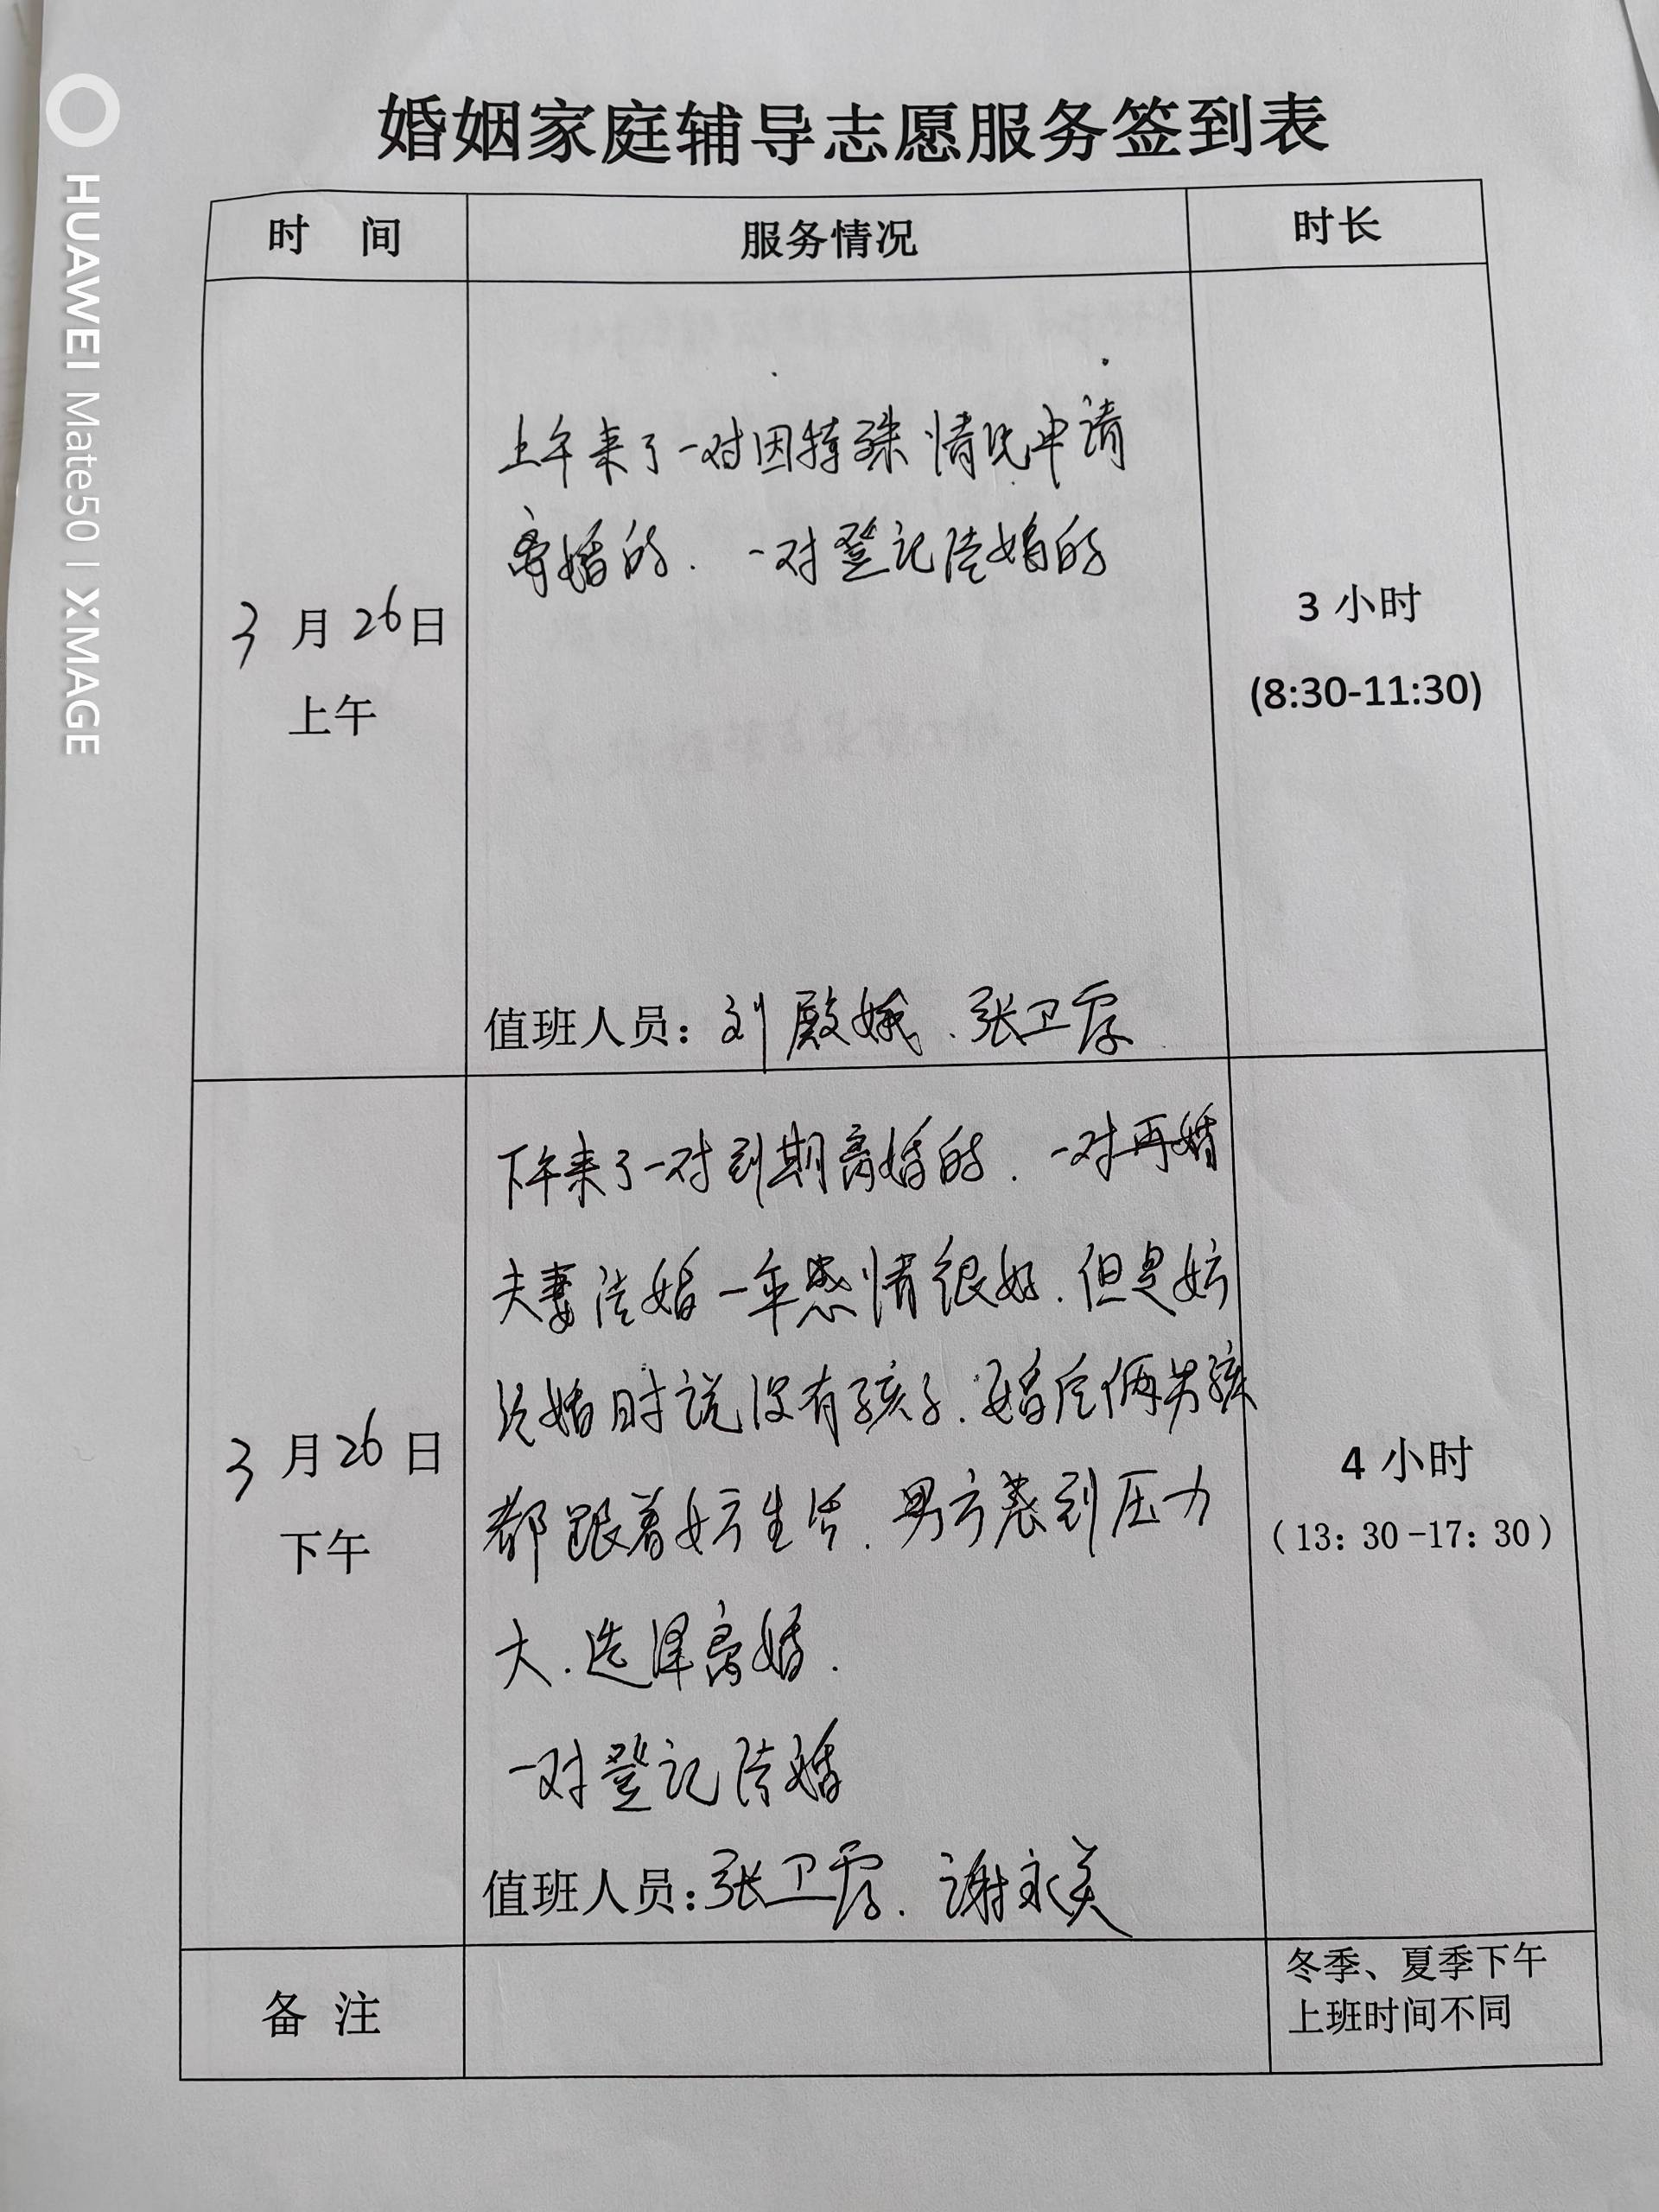 HUAWEI Mate50 | XMAGE
婚姻家庭辅导志愿服务签到表
时 间
服务情况
时长
3月26日
上午
上午来了一对因特殊情况申请
离婚的. 一对登记结婚的
值班人员：刘殿娥、张卫霞
3小时
(8:30-11:30)
3月26日
下午
下午来了一对到期离婚的. 一对再婚
夫妻结婚一年感情很好. 但是女方
结婚时说没有孩子. 婚后俩男孩
都跟着女方生活. 男方感到压力
大. 选择离婚.
一对登记结婚
值班人员：张卫霞. 谢永美
4小时
（13：30-17：30）
备 注
冬季、夏季下午
上班时间不同